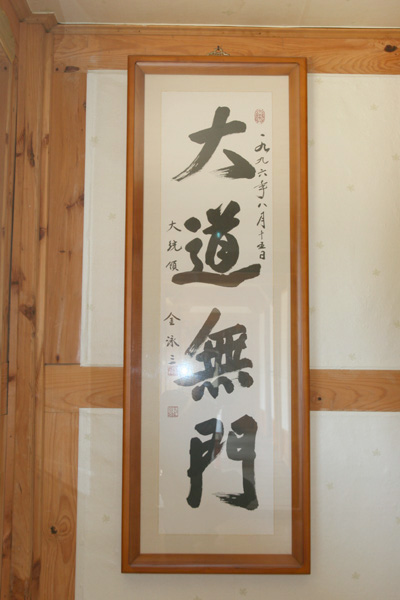 一九九六年八月十五日
大道無門
大統領
金泳三